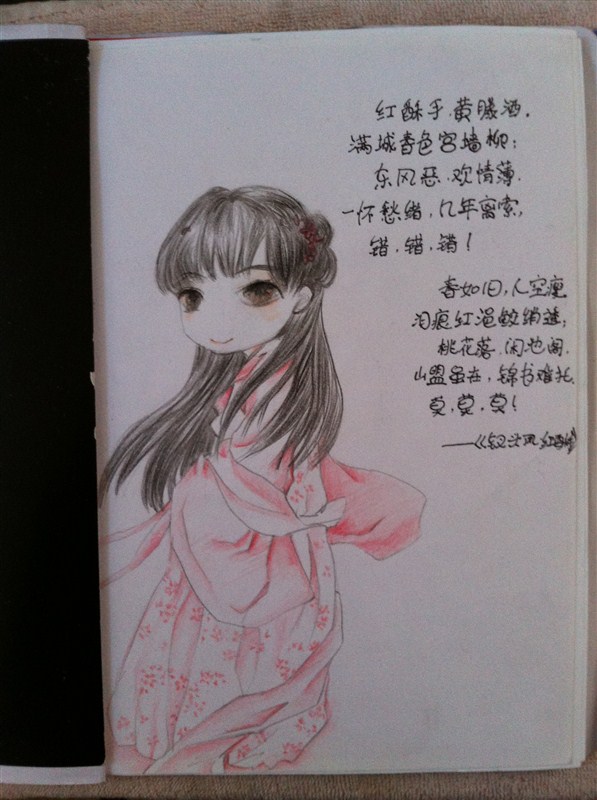 红酥手,黄縢酒,
满城春色宫墙柳;
东风恶,欢情薄,
一怀愁绪,几年离索,
错,错,错!
春如旧,人空瘦
泪痕红浥鲛绡透;
桃花落,闲池阁,
山盟虽在,锦书难托
莫,莫,莫!
——《钗头凤·红酥手》